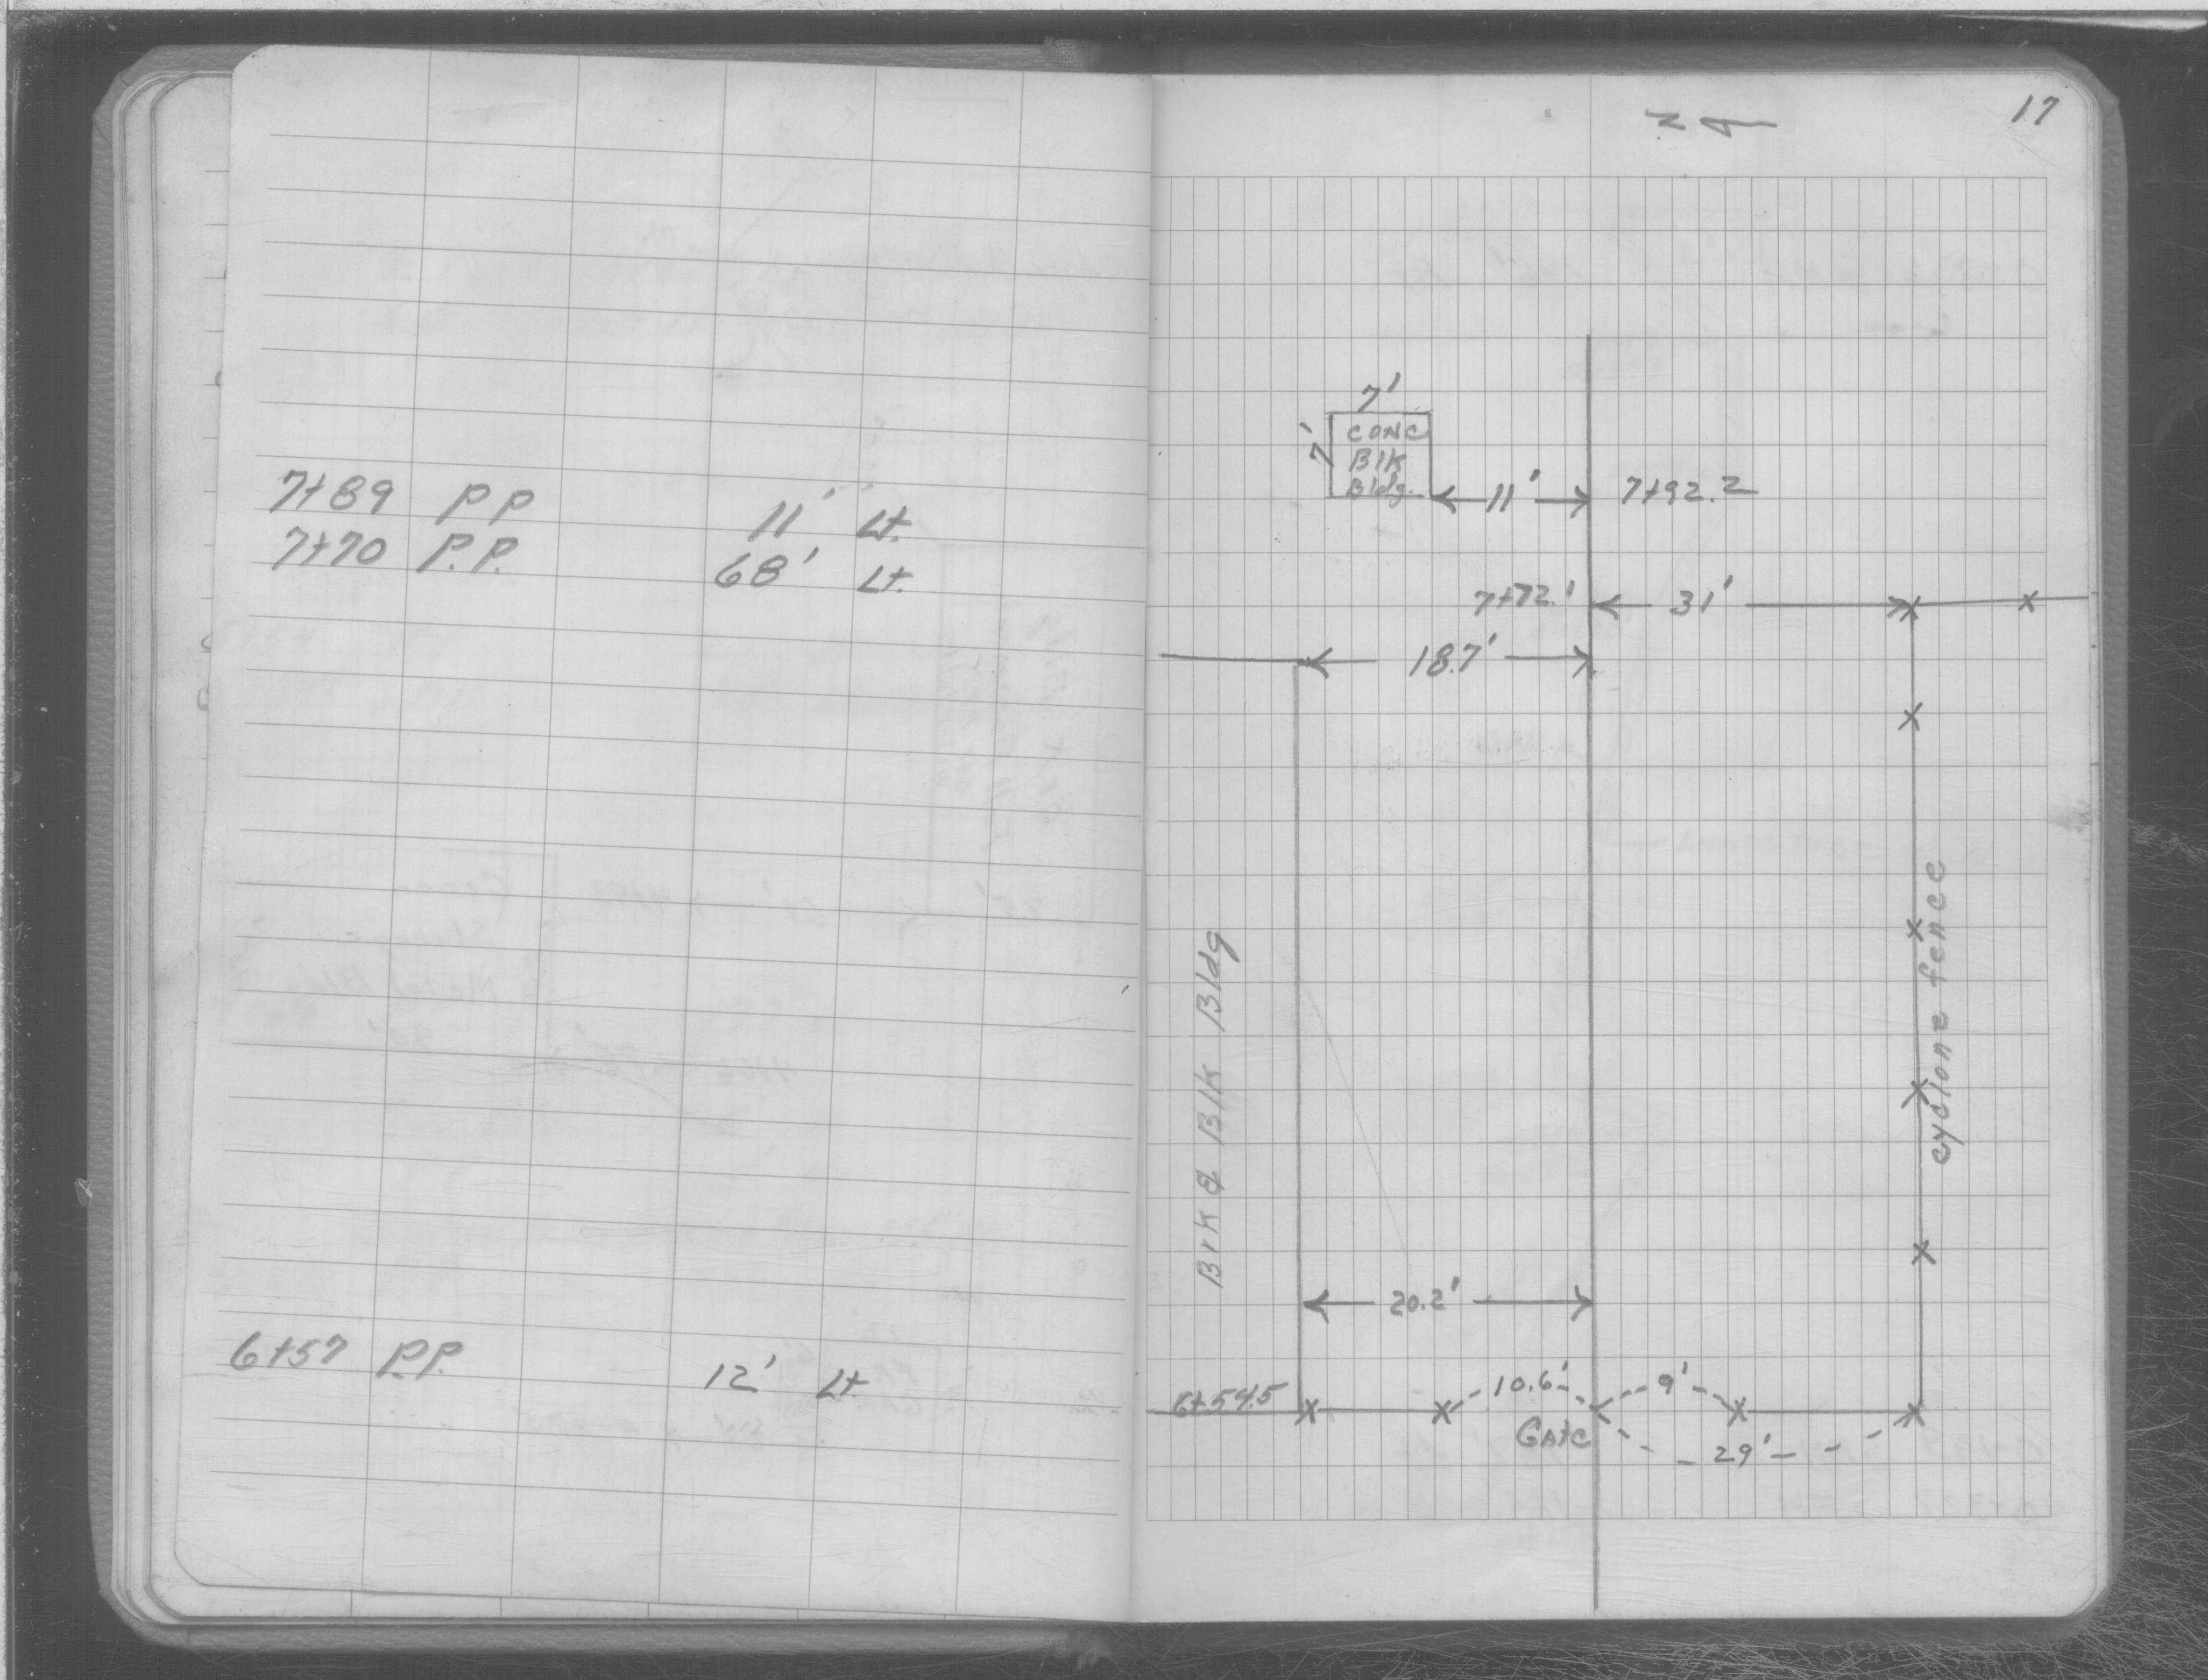 7+89 PP 11' Lt.
7+70 P.P. 68' Lt.
6+57 P.P. 12' Lt
17
N
7'
7'
CONC
Blk
Bldg.
11'
7+92.2
7+72.1
31'
18.7'
Brk & Blk Bldg
cyclone fence
20.2'
6+54.5
10.6'
9'
GAtE
29'